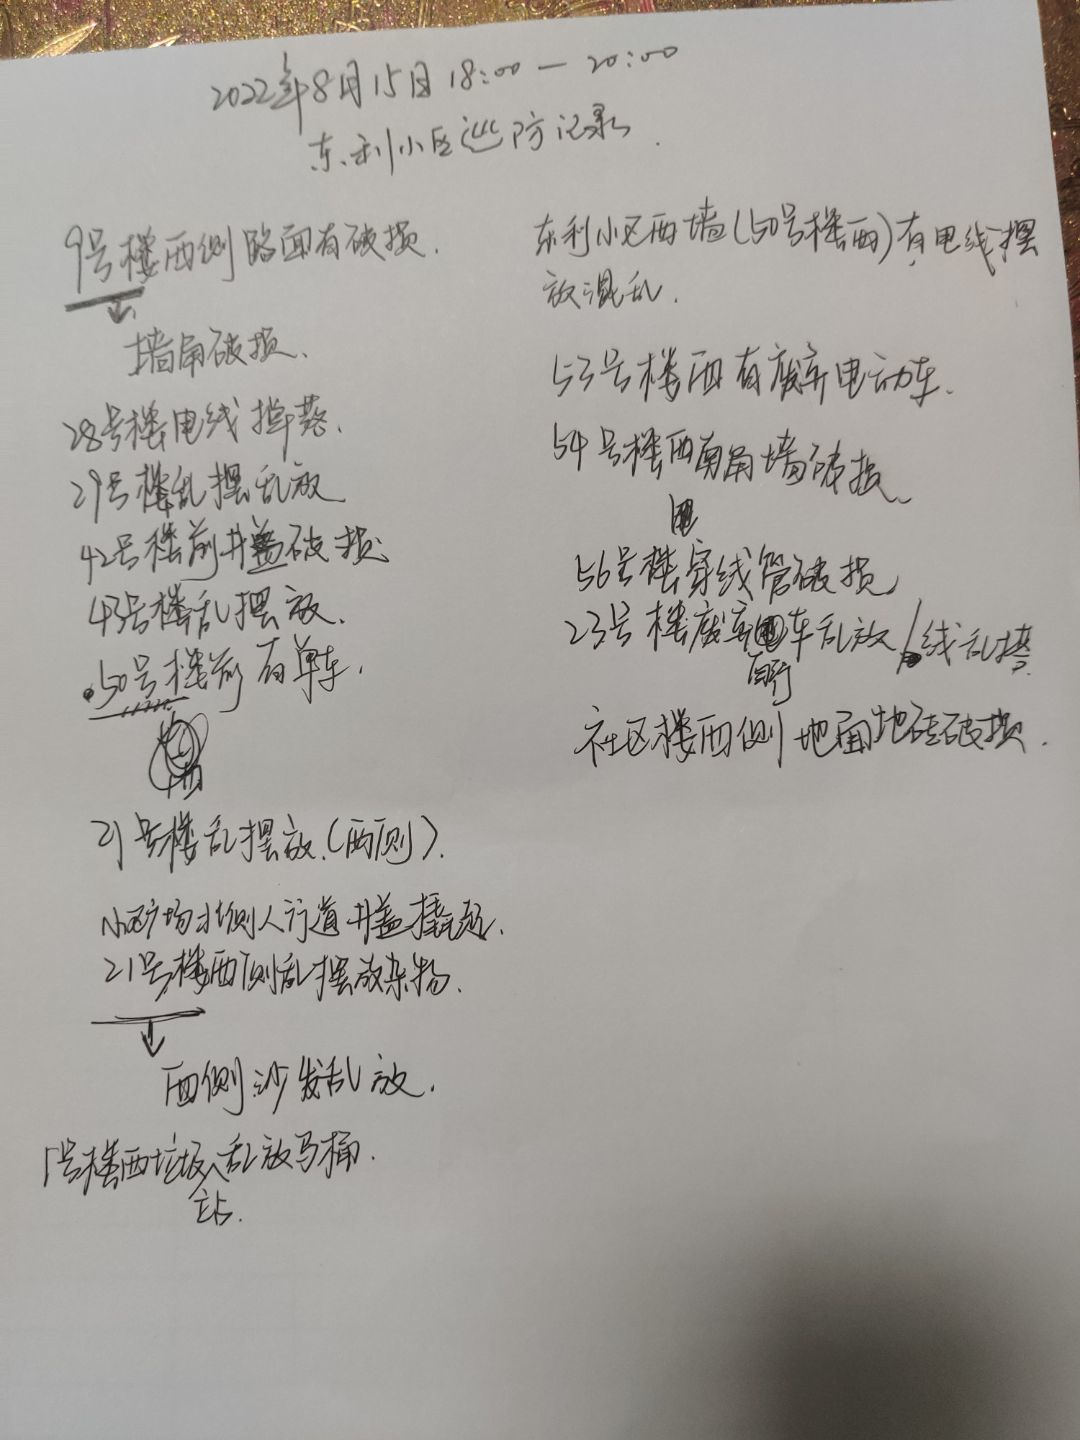 2022年8月15日 18:00—20:00
东利小区巡防记录.
9号楼西侧路面有破损.
墙角破损.
28号楼电线掉落.
29号楼乱摆乱放
42号楼前井盖破损
43号楼乱摆放.
50号楼前有单车.
21号楼乱摆放.(西侧).
小区广场北侧人行道井盖
21号楼西侧乱摆放杂物.
西侧沙发乱放.
1号楼西垃圾站乱放马桶.
东利小区西墙(50号楼西)有电线摆
放混乱.
53号楼西有废弃电动车.
54号楼西南角墙破损.
56号楼穿线管破损
23号楼废弃自行车乱放/线乱搭.
社区楼西侧地面地砖破损.